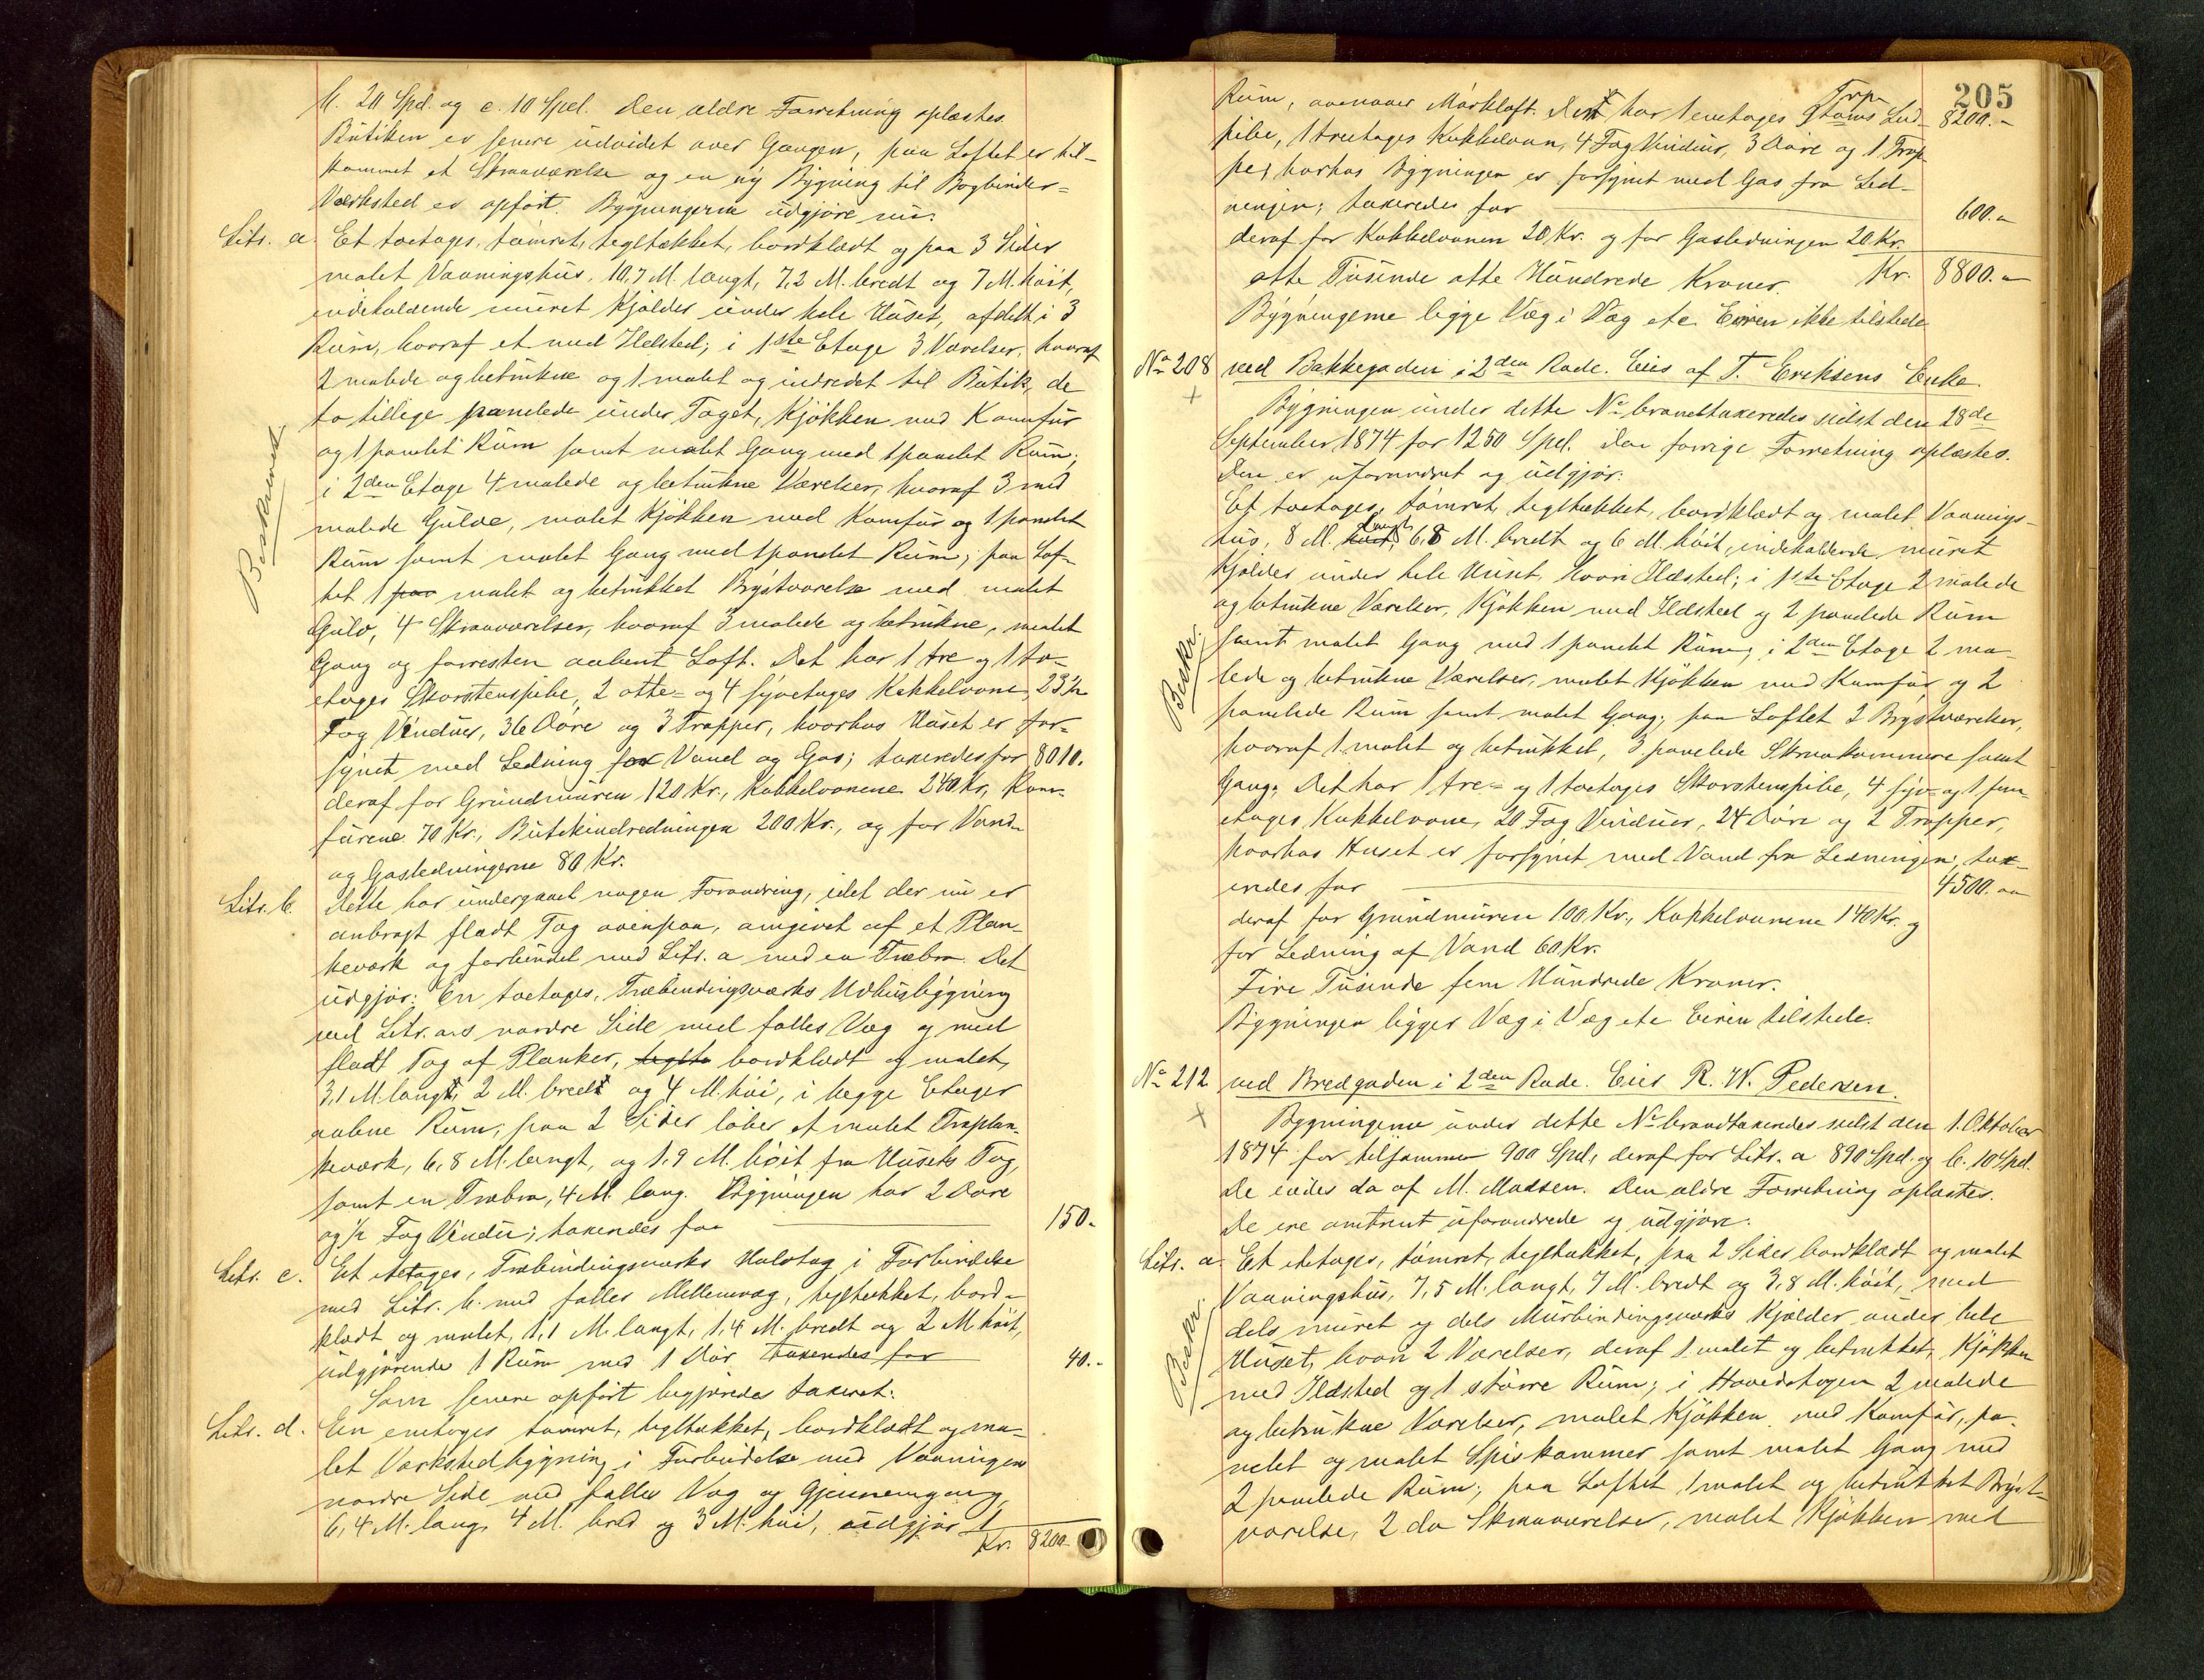 b. 20 Spd. og c. 10 Spd. Den ældre Forretning oplæstes.
Butiken er senere udvidet over Gangen, paa Loftet er til-
kommet et Skraaværelse og en ny Bygning til Bogbinder=
Værksted er opført. Bygningerne udgjøre nu:
Litr. a. Et toetages, tømret, tegltækket, bordklædt og paa 3 Sider
malet Vaaningshus, 10,7 M. langt, 7,2 M. bredt og 7 M. høit,
indeholdende muret Kjælder under hele Huset, afdelt i 3
Rum, hvoraf et med Ildsted; i 1ste Etage 3 Værelser, hvoraf
2 malede og betrukne og 1 malet og indredet til Butik, de
to tillige panelede under Taget, Kjøkken med Komfur
og 1 panelet Rum samt malet Gang med 1 panelet Rum;
i 2den Etage 4 malede og betrukne Værelser, hvoraf 3 med
malede Gulve, malet Kjøkken med Komfur og 1 panelet
Rum samt malet Gang med 1 panelet Rum; paa Lof-
tet 1 paa malet og betrukket Brystværelse med malet
Gulv, 4 Skraaværelser, hvoraf 3 malede og betrukne, malet
Gang og forresten aabent Loft. Det har 1 tre og 1 to-
etages Skorstenspibe, 2 otte= og 4 syvetages Kakkelovne, 23 1/2
Fag Vinduer, 36 Døre og 3 Trapper, hvorhos Huset er for-
synet med Ledning for Vand og Gas; taxeredes for 8010.
deraf for Grundmuren 120 Kr., Kakkelovnene 240 Kr., Kom-
furene 70 Kr., Butikindredningen 200 Kr., og for Vand-
og Gasledningerne 80 Kr.
Litr. b. Dette har undergaaet nogen Forandring, idet der nu er
anbragt fladt Tag ovenpaa, omgivet af et Plan-
keværk og forbundet med Litr. a med en Træbro. Det
udgjør: En toetages, Træbindingsværks Udhusbygning
ved Litr. a.s nordre Side med fælles Væg og med
fladt Tag af Planker, teglte bordklædt og malet,
3,1 M. langt, 2 M. bredt og 4 M. høi, i begge Etager
aabne Rum; paa 2 Sider løber et malet Træplan-
keværk, 6,8 M. langt, og 1,9 M. høit fra Husets Tag,
samt en Træbro, 4 M. lang. Bygningen har 2 Døre
og 1/2 Fag Vindu; taxeredes for 150.-
Litr. c. Et etetages, Træbindingsværks Halvtag i Forbindelse
med Litr. b. med fælles Mellemvæg, tegltækket, bord-
klædt og malet, 1,1 M. langt, 1,4 M. bredt og 2 M. høit,
udgjørende 1 Rum med 1 Dør taxeredes for 40.-
Som senere opført begjæredes taxeret:
Litr. d. En enetages tømret, tegltækket, bordklædt og ma-
let Værkstedbygning i Forbindelse med Vaaningens
nordre Side med fælles Væg og Gjennemgang,
6,4 M. lang, 4 M. bred og 3 M. høi, udgjør 1
Kr. 8200.-
Beskrevet
205
Rum, ovenover Mørkloft. Den har 1 enetages Skorstens 8200.-
pibe, 1 treetages Kakkelovn, 4 Fag Vinduer, 3 Døre og 1 Trap-
pe, hvorhos Bygningen er forsynet med Gas fra Led-
ningen; taxeredes for 600.-
deraf for Kakkelovnen 20 Kr. og for Gasledningen 20 Kr.
otte Tusinde otte Hundrede Kroner. Kr. 8800.-
Bygningerne ligge Væg i Væg etc. Eieren ikke tilstede.
No 208 ved Bakkegaden i 2den Rode. Eies af T. Eriksens Enke.
Bygningen under dette No brandtaxeredes sidst den 28de
September 1874 for 1250 Spd. Den forrige Forretning oplæstes.
Den er uforandret og udgjør:
Et toetages, tømret, tegltækket, bordklædt og malet Vaanings-
hus, 8 M. høit, langt 6,8 M. bredt og 6 M. høit, indeholdende muret
Kjælder under hele Huset, hvori Ildsted; i 1ste Etage 2 malede
og betrukne Værelser, Kjøkken med Ildsted og 2 panelede Rum
samt malet Gang med 1 panelet Rum; i 2den Etage 2 ma-
lede og betrukne Værelser, malet Kjøkken med Komfur og 2
panelede Rum samt malet Gang; paa Loftet 2 Brystværelser,
hvoraf 1 malet og betrukket, 3 panelede Skraakammere samt
Gang. Det har 1 tre= og 1 toetages Skorstenspibe, 4 syv= og 1 fem-
etages Kakkelovne, 20 Fag Vinduer, 24 Døre og 2 Trapper,
hvorhos Huset er forsynet med Vand fra Ledningen, tax-
eredes for 4500.-
deraf for Grundmuren 100 Kr., Kakkelovnene 140 Kr. og
for Ledning af Vand 60 Kr.
Fire Tusinde fem Hundrede Kroner.
Bygningen ligger Væg i Væg etc. Eieren tilstede.
Beskr.
No 212 ved Bredgaden i 2den Rode. Eier R. W. Pedersen.
Bygningerne under dette No brandtaxeredes sidst den 1. Oktober
1874 for tilsammen 900 Spd., deraf for Litr. a 890 Spd. og b. 10 Spd.
De eiedes da af M. Madsen. Den ældre Forretning oplæstes.
De ere omtrent uforandrede og udgjøre:
Litr. a. Et etetages, tømret, tegltækket, paa 2 Sider bordklædt og malet
Vaaningshus, 7,5 M. langt, 7 M. bredt og 3,8 M. høit, med
dels muret og dels Murbindingsværks Kjælder under hele
Huset, hvori 2 Værelser, deraf 1 malet og betrukket, Kjøkken
med Ildsted og 1 større Rum; i Hovedetagen 2 malede
og betrukne Værelser, malet Kjøkken med Komfur, pa-
nelet og malet Spiskammer samt malet Gang med
2 panelede Rum; paa Loftet 1 malet og betrukket Bryst-
værelse, 2 do Skraaværelser, malet Kjøkken med
Beskr.